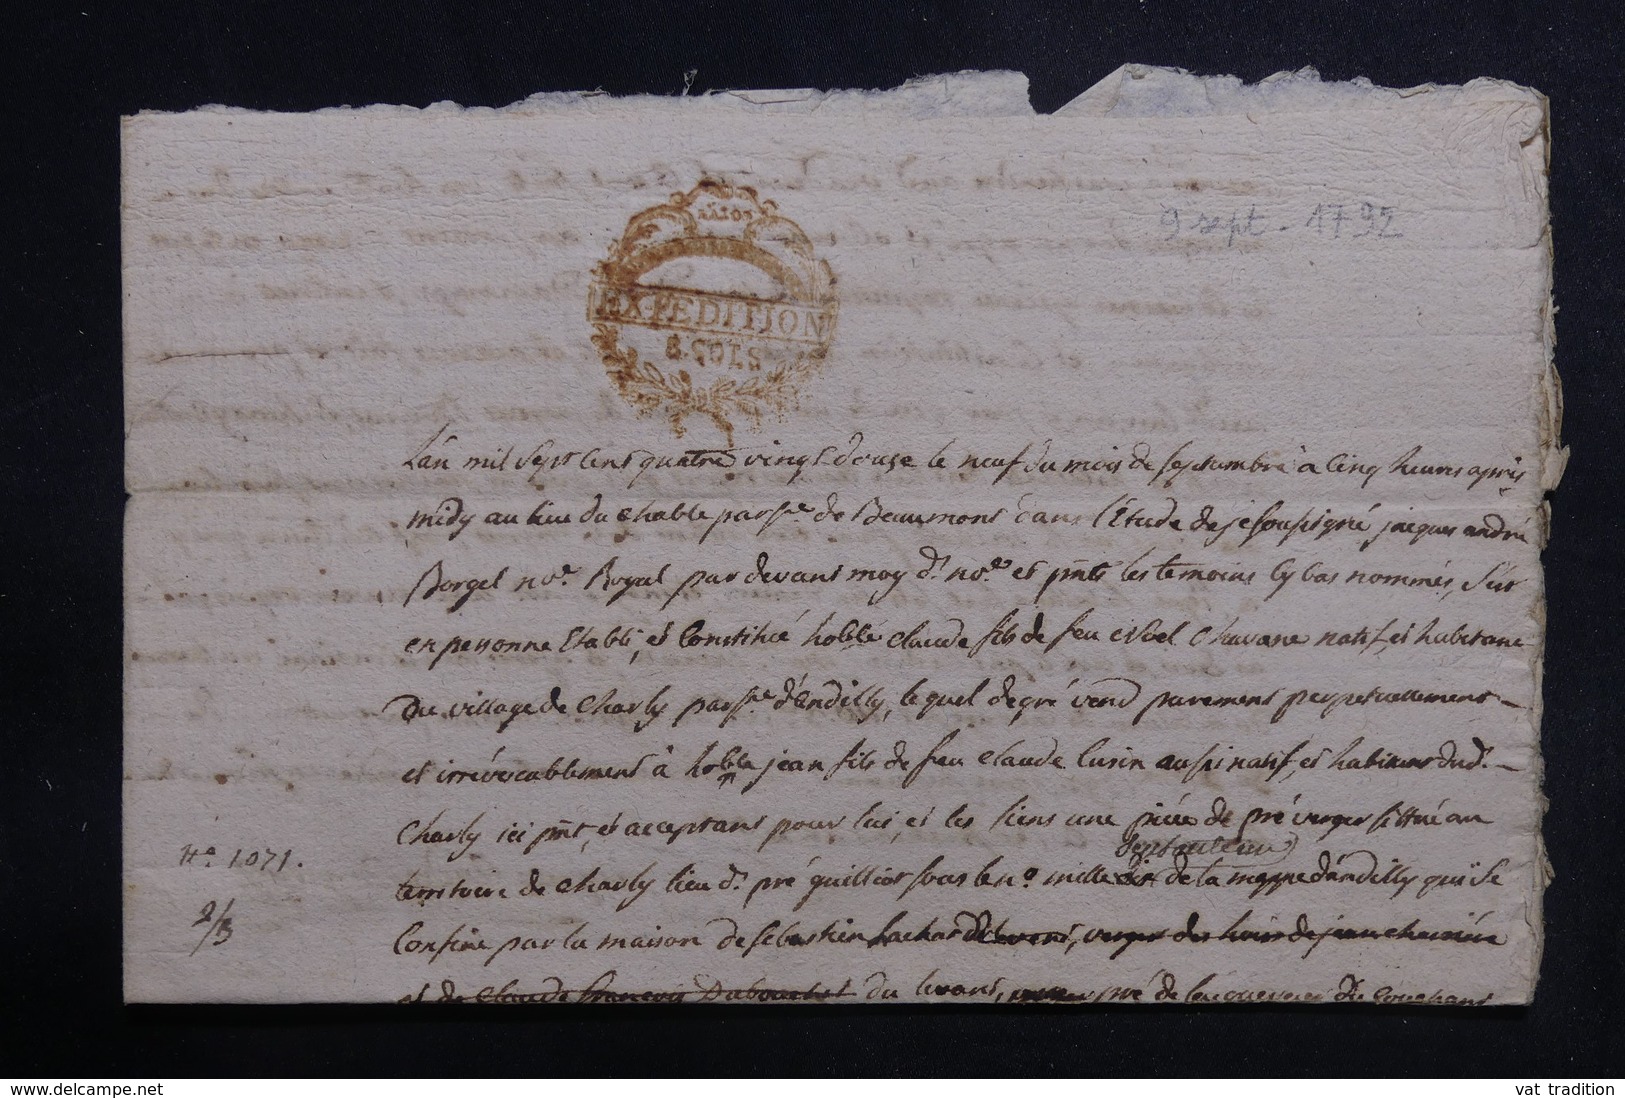 9 sept - 1792
EXPEDITION
8. SOLS
L'an mil sept cent quatre vingt douze le neuf du mois de septembre à cinq heures après
midy au lieu du Chable parsse de Beaumont dans l'Etude de je soussigné jacques andré
Borgel nore Royal par devant moy dt nore et pnts les temoins cy bas nommés, s'est
en personne Etabli, et Constitué hoble Claude fils de feu Noel Chavane natif, et habitant
Du village de Charly parsse d'Endilly, lequel de gré vend purement perpetuellement
et irrévocablement à hoble jean fils de feu Claude Cusin aussi natif, et habitant dud.t
Charly ici pnt, et acceptant pour lui, et les siens une pièce de pré verger sittué au
septante un
No 1071.
territoire de Charly lieu dt pré quillior sous le no mille de la mappe d'andilly qui se
2/3
Confine par la maison de sébastien verger des hoirs de jean
et de Claude françois Dubouchet du levant, pré de du Couchant
www.delcampe.net
vat_tradition